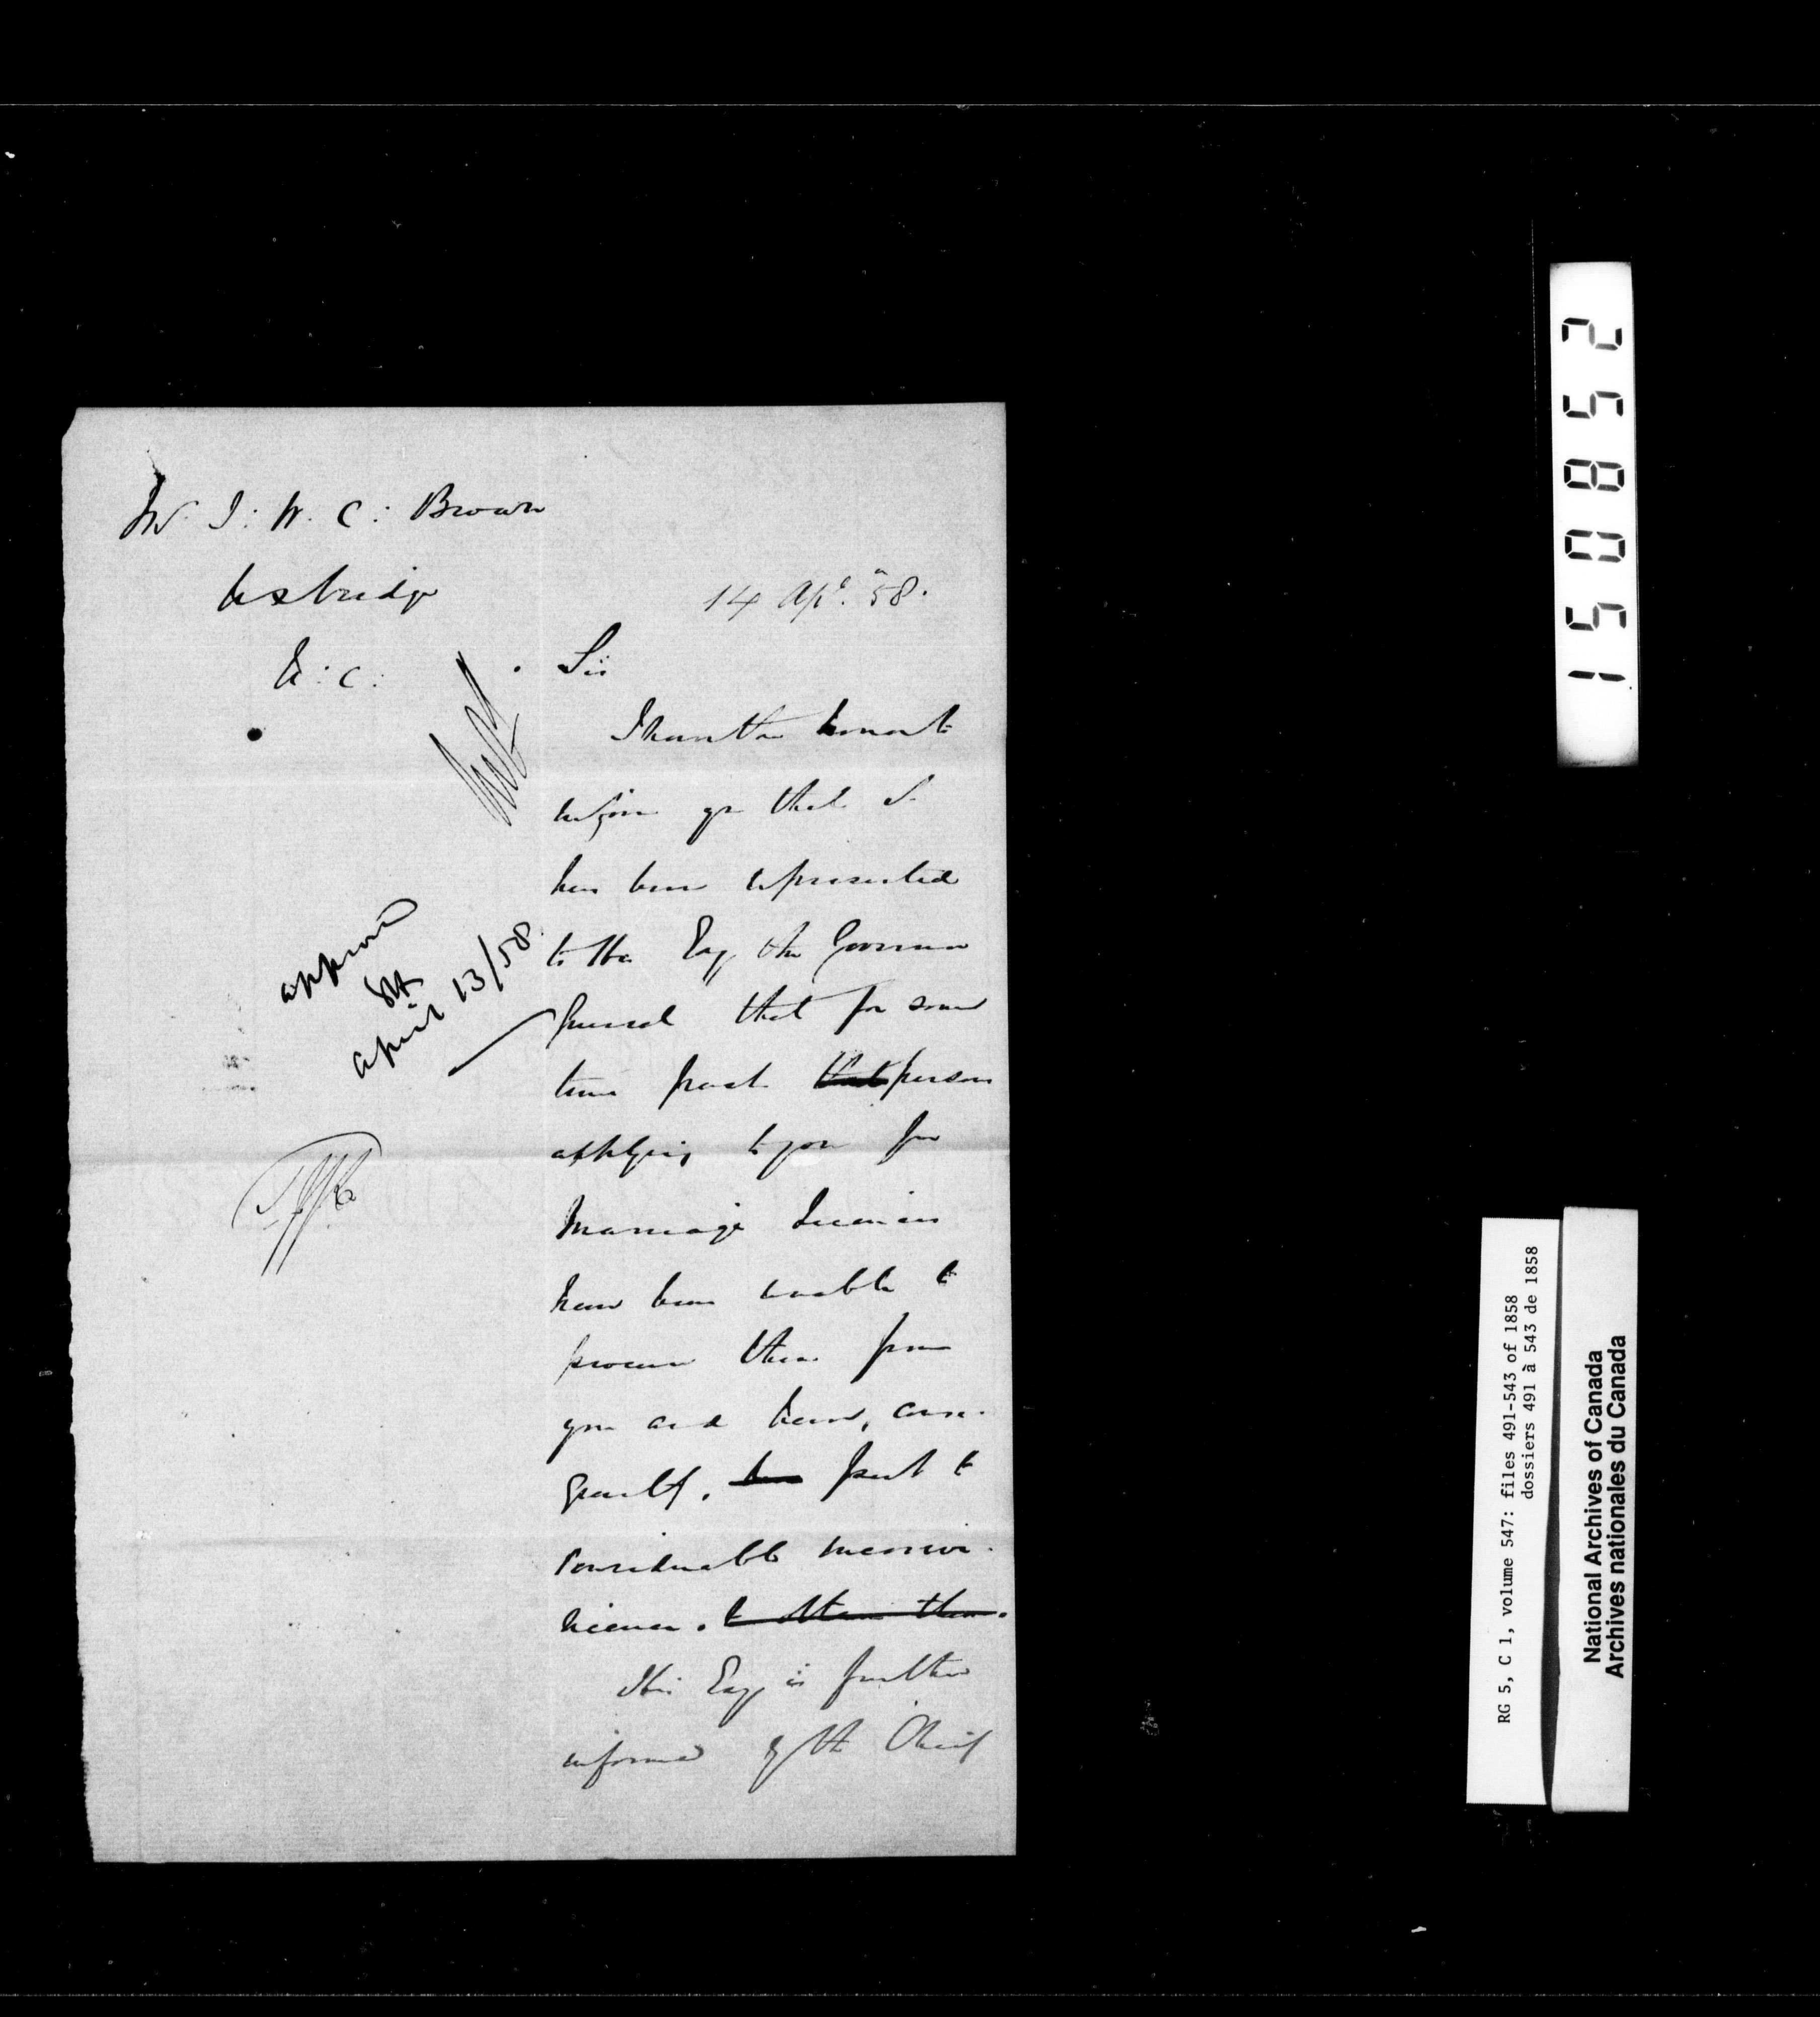 Mr. J: W. C: Brown
Uxbridge
U: C:
14 Apl. "58.
Sir
I have the honor to
inform you that it
has been represented
to His Excy the Governor
General that for some
time past that persons
applying to you for
Marriage Licenses
have been unable to
procure them from
you and been, conse-
quently, been put to
considerable inconve-
nience. to obtain them.
His Excy is further
informed by the Chief
approved
April 13/58
150852
RG 5, C 1, volume 547: files 491-543 of 1858
dossiers 491 à 543 de 1858
National Archives of Canada
Archives nationales du Canada